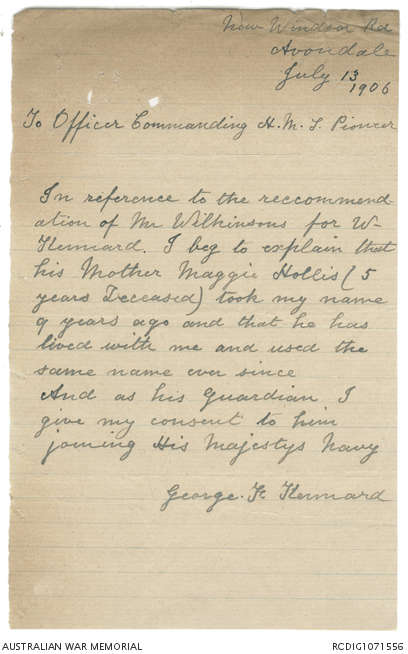 New Windsor Rd
Avondale
July 13
1906
To Officer Commanding H. M. S. Pioneer
In reference to the reccommend-
ation of Mr Wilkinsons for W-
Kennard. I beg to explain that
his Mother Maggie Hollis (5
years Deceased) took my name
9 years ago and that he has
lived with me and used the
same name ever since
And as his Guardian I
give my consent to him
joining His Majestys Navy
George. F. Kennard
AUSTRALIAN WAR MEMORIAL
RCDIG1071556